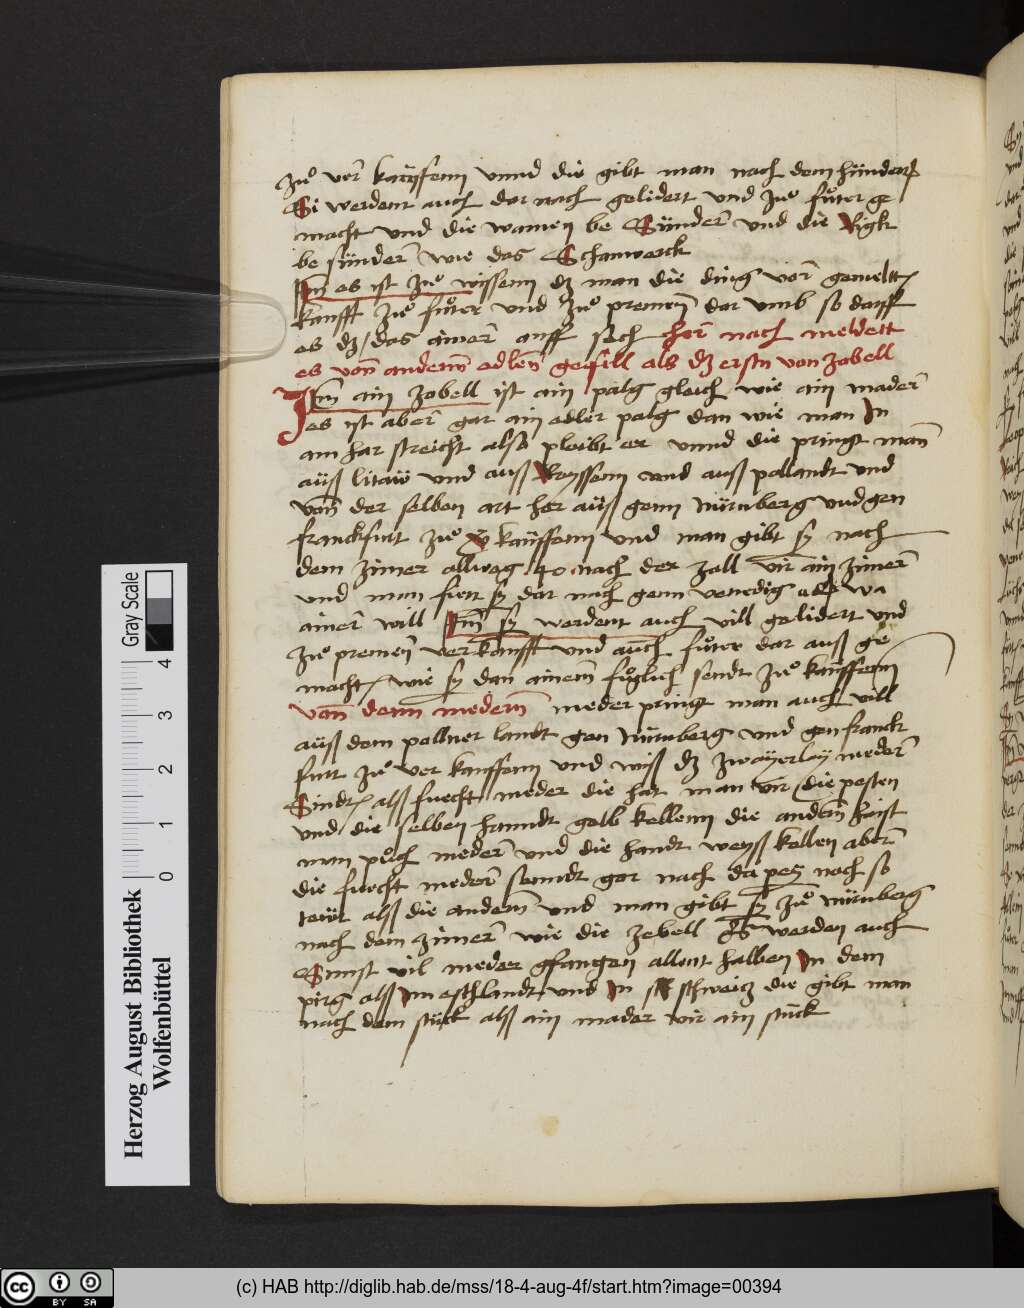 zuͦ ver kaüfenn vnnd die gibt man nach dem hündert
Si werdent auch dar nach gelidert vnd zuͦ fuͦter ge
macht vnd die wamen be Sünder vnd die Rigk
be sünder wie das Schanwerck
Itm es ist zuͦ wissenn dz man die ding vor gemeltt
kaufft zuͦ fuͦter vnd zuͦ premen dar vmb so darff
es dz das ainer auff sech her nach meldett
es von andernn edlen gefill als dz erstn von zobell
Itm ain zobell ist ain palg gleich wie ain mader
es ist aber gar ain edler palg dan wie man In
am har streicht also pleibt er vnnd die pringt man
aüß litaw vnd auß Reyssenn vnd auß pollandt vnd
von der selben art her aüß genn Nürnberg vnd gen
franckfurt zuͦ kaüffenn vnd man gibt sy nach
dem zimer allweg 40 nach der zall vir ain zimer
vnd man fiert sy dar nach genn venedig wa
ainer will Itm sy werdent auch vill gelidert vnd
zuͦ premen verkaufft vnd auch fuͦter dar auß ge
macht wie sy dan ainem fuͦglich sendt zuͦ kaüffenn
Vonn denn medernn meder pringt man auch vill
aüß dem pollner landt gen Nürnberg vnd gen franck
furt zuͦ ver kauffenn vnd wiß dz zwayerlay meder
Sindt alß fuecht meder die hat man vir die pesten
vnd die selben hanndt gelb kellenn die andern haist
man puͦch meder vnd die handt weyß kellen aber
die fuecht meder senndt gar nach da pey noch so
teüir alß die andern vnd man gibt sy zuͦ Nürnberg
nach dem zimer wie die zebell Es werden auch
Sunst vil meder gfangen allent halben In dem
pirg alß Im eschlandt vnd In schweitz die gibt man
nach dem stück alß ain mader vir ain stück
Gray Scale
4
3
2
1
0
Herzog August Bibliothek
Wolfenbüttel
cc BY SA
(c) HAB http://diglib.hab.de/mss/18-4-aug-4f/start.htm?image=00394